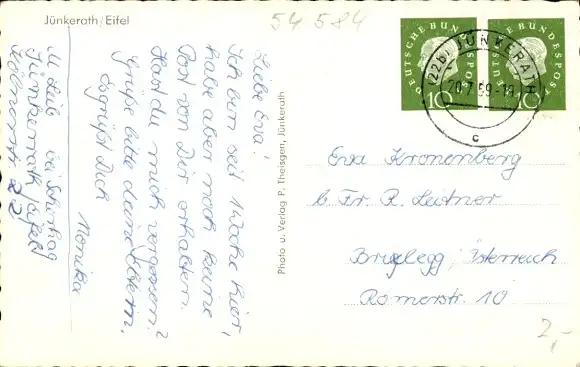 Jünkerath/Eifel
54 584
Liebe Eva!
Ich bin seit 1 Woche hier,
habe aber noch keine
Post von Dir erhalten.
Hast du mich vergessen?
Grüße bitte deine Eltern.
Es grüßt Dich
Monika
M. Leib bei
Jünkerath Eifel
22
Photo u. Verlag P. Theisgen, Jünkerath
DEUTSCHE BUNDESPOST
10
DEUTSCHE BUNDESPOST
10
(22b) JÜNKERATH
20.7.59-18
c
Eva Kronenberg
b. Fr. R. Leitner
Brixlegg, Österreich
Römerstr. 10
2,-